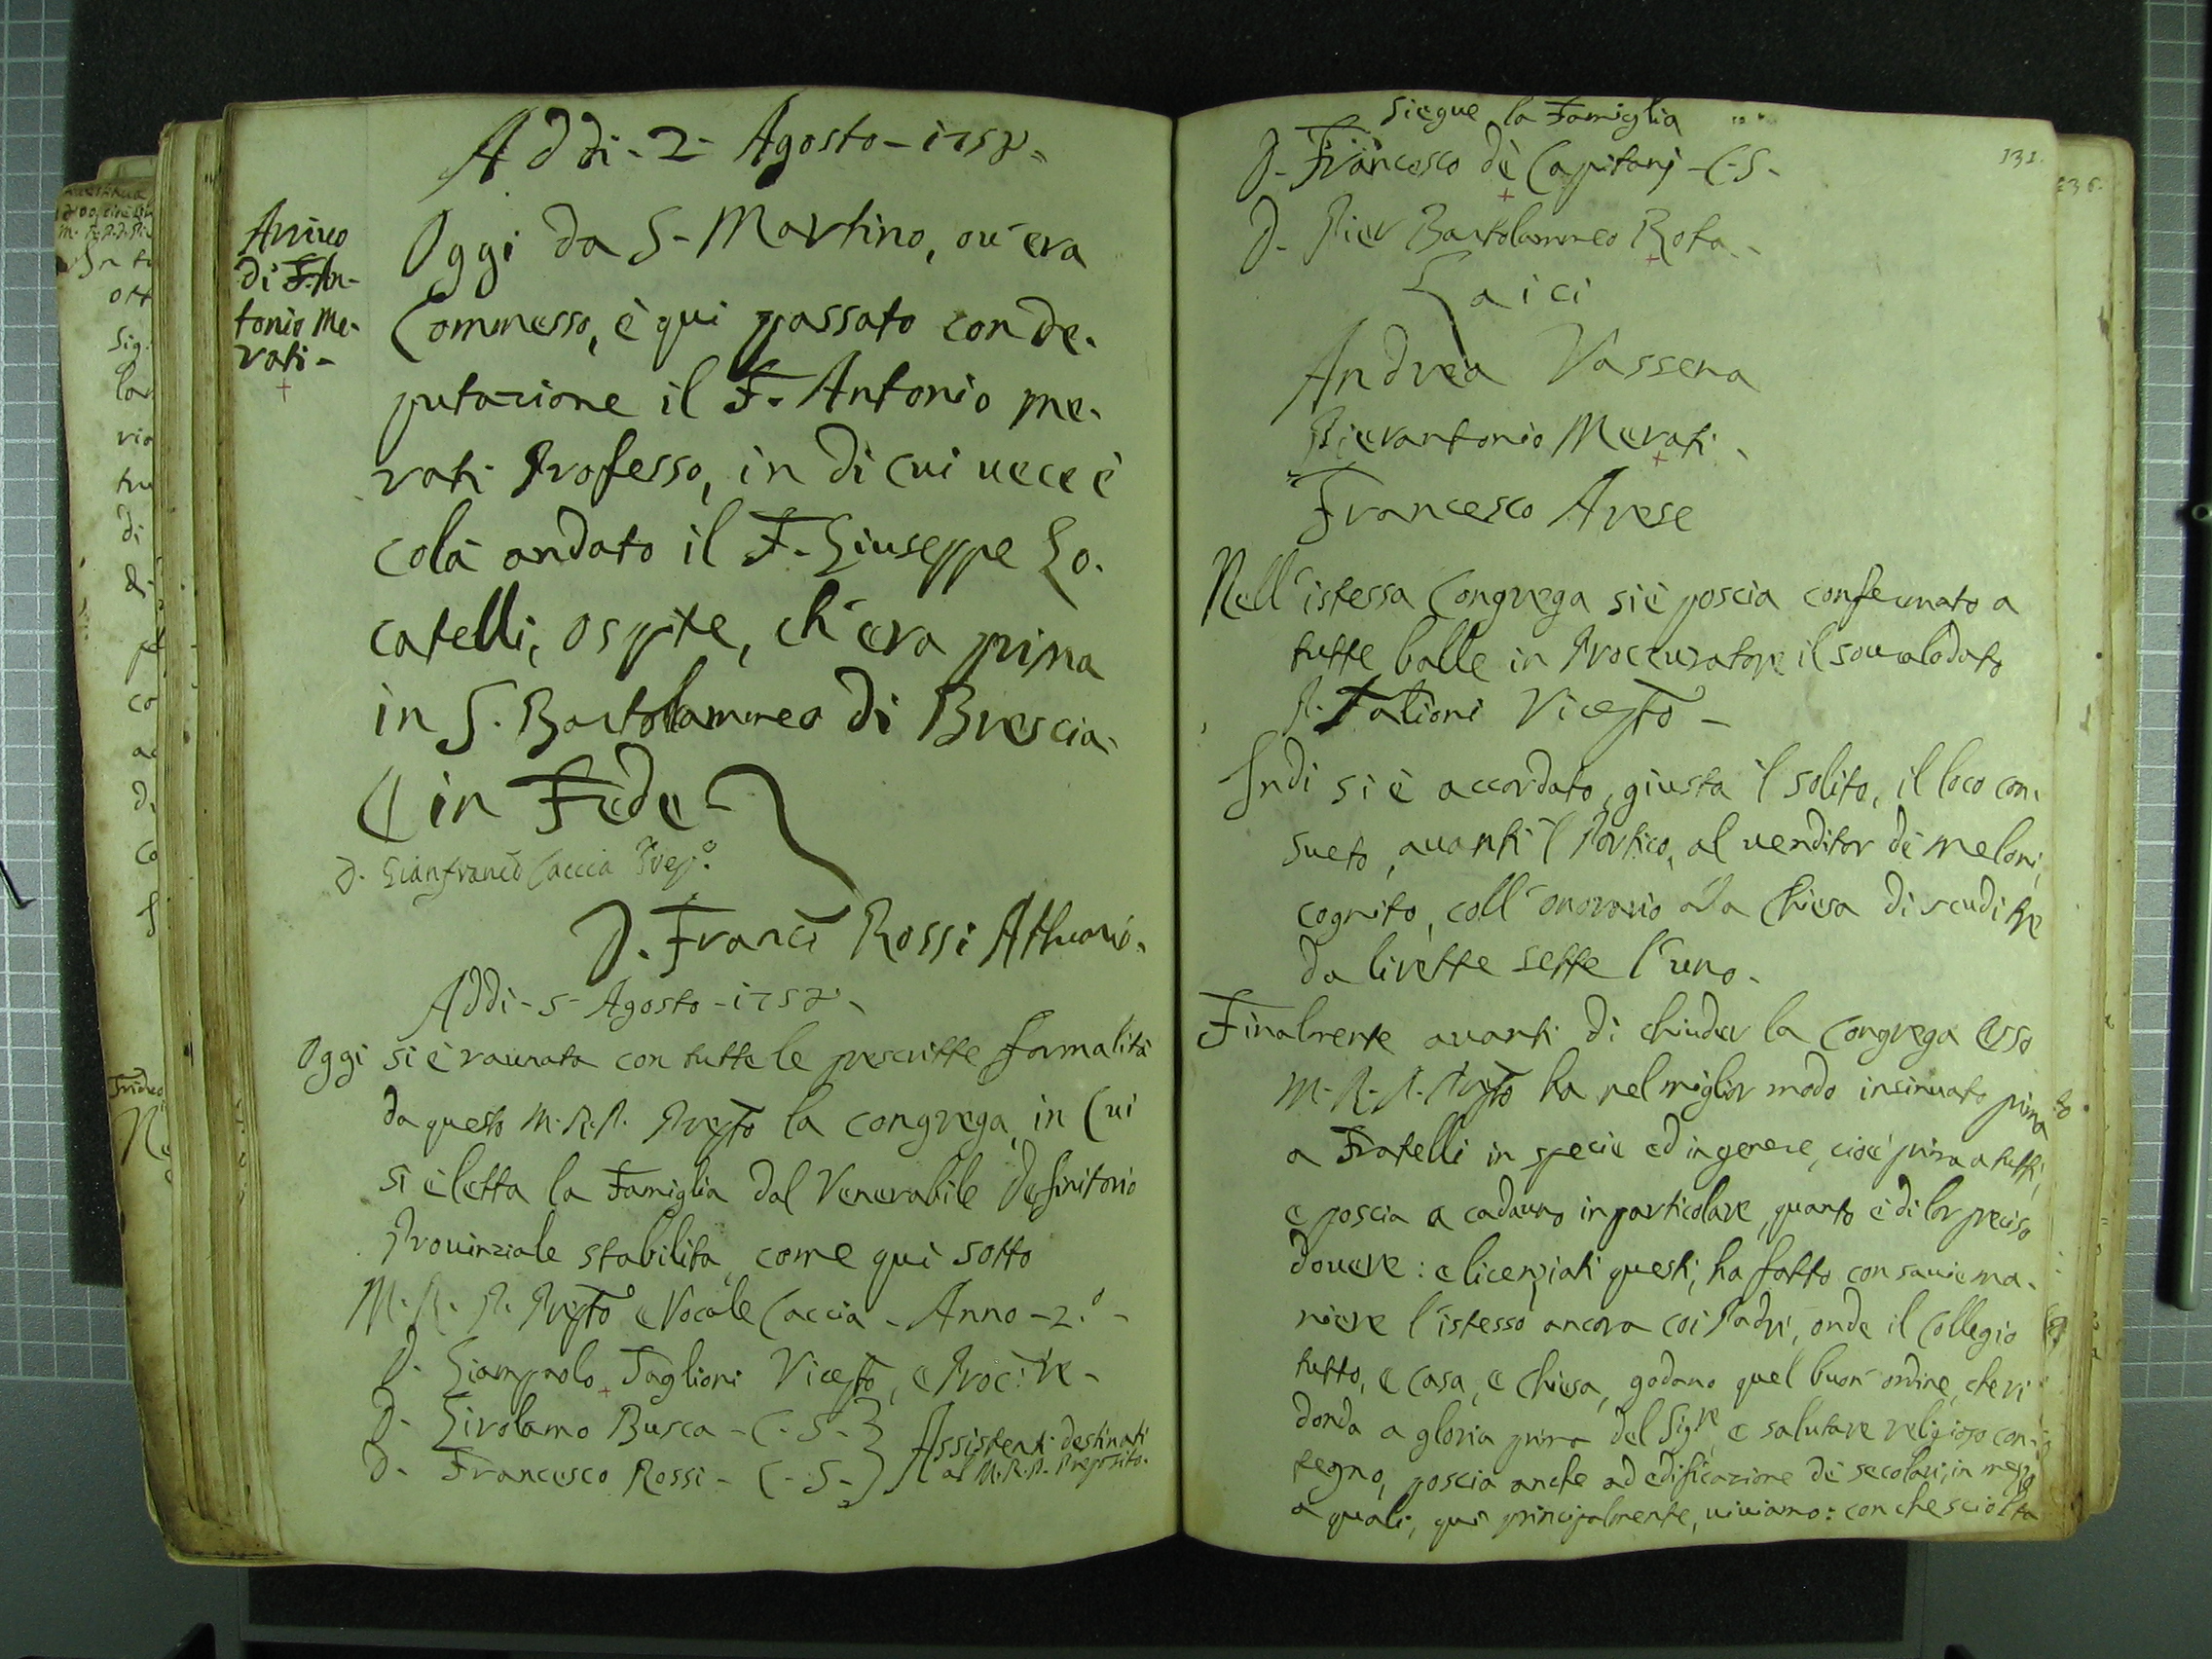 Addi - 2 - Agosto - 1758 =
Arrivo
di F. An-
tonio Me-
rati -
Oggi da S. Martino, ou'era
Commesso, è qui passato con de-
putazione il F. Antonio Me-
rati Professo, in di cui uece è
colà andato il F. Giuseppe Lo-
catelli, ospite, ch'era prima
in S. Bartolammeo di Brescia.
in Fede
D. Gianfranco Caccia Prep.o
D. Franc.o Rossi Attuario.
Addi - 5 - Agosto - 1758 -
Oggi si è raunata con tutte le prescritte formalità
da questo M. R. P. Prep.to la congrega, in cui
si è letta la Famiglia dal Venerabile Definitorio
Prouinziale stabilita, come qui sotto
M. R. P. Prep.to e Vocale Caccia - Anno - 2.o -
D. Giampaolo Taglioni Vicep.to, e Proc.re -
D. Girolamo Busca - C. S. -
D. Francesco Rossi - C. S. -
Assistenti destinati
al M. R. P. Preposito.
Siegue la Famiglia
131.
D. Francesco de Capitanj - C. S. -
D. Pier Bartolammeo Rota -
Laici
Andrea Vassena
Pierantonio Merati -
Francesco Arese
Nell'istessa Congrega si è poscia confermato a
tutte balle in Proccuratore il soura lodato
P. Talioni Vicep.to -
Indi si è accordato, giusta 'l solito, il loco con-
sueto, auanti 'l Portico, al venditor de meloni,
cognito, coll'onorario alla Chiesa di scudi tre
da lirette sette l'uno.
Finalmente auanti di chiuder la Congrega esso
M. R. P. Prep.to ha nel miglior modo insinuato prima
a Fratelli in specie ed in genere, cioè prima a tutti,
e poscia a cadauno in particolare, quanto è di lor preciso
douere: e licenziati questi, ha fatto con sauie ma-
niere l'istesso ancora coi Padri, onde il Collegio
tutto, e casa, e Chiesa, godano quel buon ordine, che ri
donda a gloria prima del Sig.re, e salutare religioso con-
tegno, poscia anche ad edificazione de secolari, in mezzo
a quali, qui principalmente, uiuiamo: con che sciolta